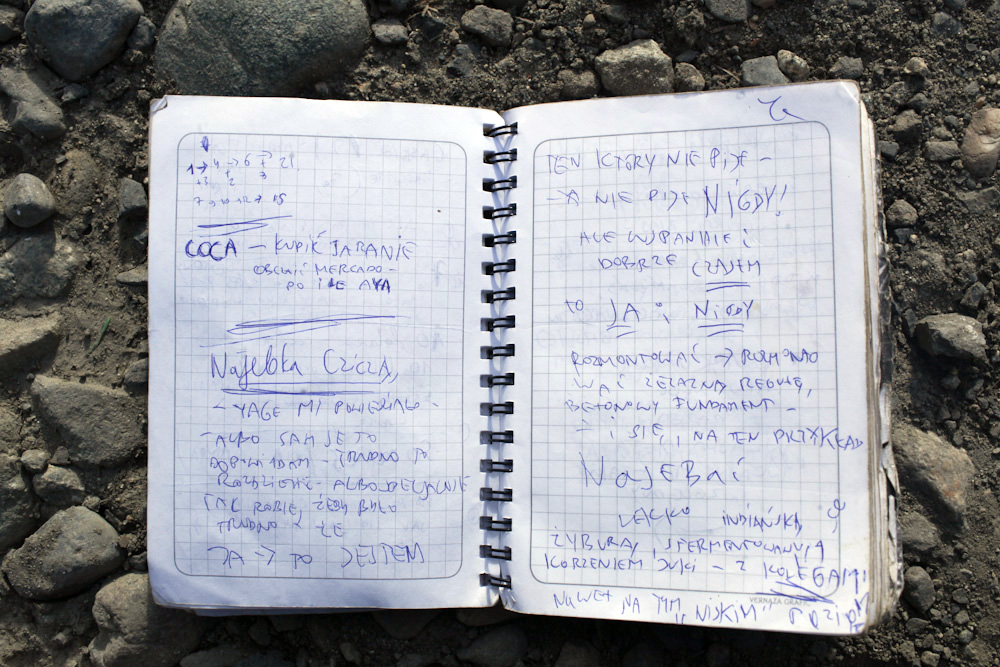 1 → 4 → 6 → 21
+3 2 3
COCA – KUPIĆ JARANIE
MERCADO –
PO
Najebka Cziczą,
– YAGE MI POWIEDZIAŁO –
– ALBO SAM JE TO
DOPOWIADAM – TRUDNO TO
ROZDZIELIĆ – ALBO SPECJALNIE
TAK ROBIĘ, ŻEBY BYŁO
TRUDNO
JA → TO JESTEM
TEN KTÓRY NIE PIJE –
– JA NIE PIJĘ NIGDY!
ALE WSPANIALE I
DOBRZE CZASEM
TO JA i NIGDY
ROZMONTOWAĆ → ROZMONTO
WAĆ ŻELAZNĄ REGUŁĘ,
BETONOWY FUNDAMENT –
– I SIĘ, NA TEN PRZYKŁAD
NAJEBAĆ
LEKKO INDIAŃSKĄ
, SFERMENTOWANYM
KORZENIEM JUKI – Z KOLEGAMI
VERNAZA GRAFIC
NAWET NA TYM "NISKIM"